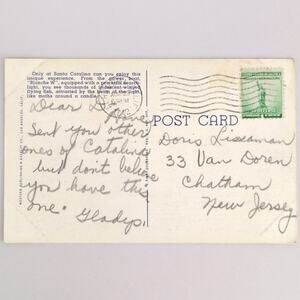 Only at Santa Catalina can you enjoy this
unique experience. From the power boat,
"Blanche W", equipped with a powerful search-
light, you see thousands of iridescent-winged
flying fish, attracted by the beam of the light,
like moths around a candle.
Dear D
Have
sent you other
ones of Catalina
but don't believe
you have this
one. Gladys.
POST CARD
Doris Lissaman
33 Van Doren
Chatham
New Jersey